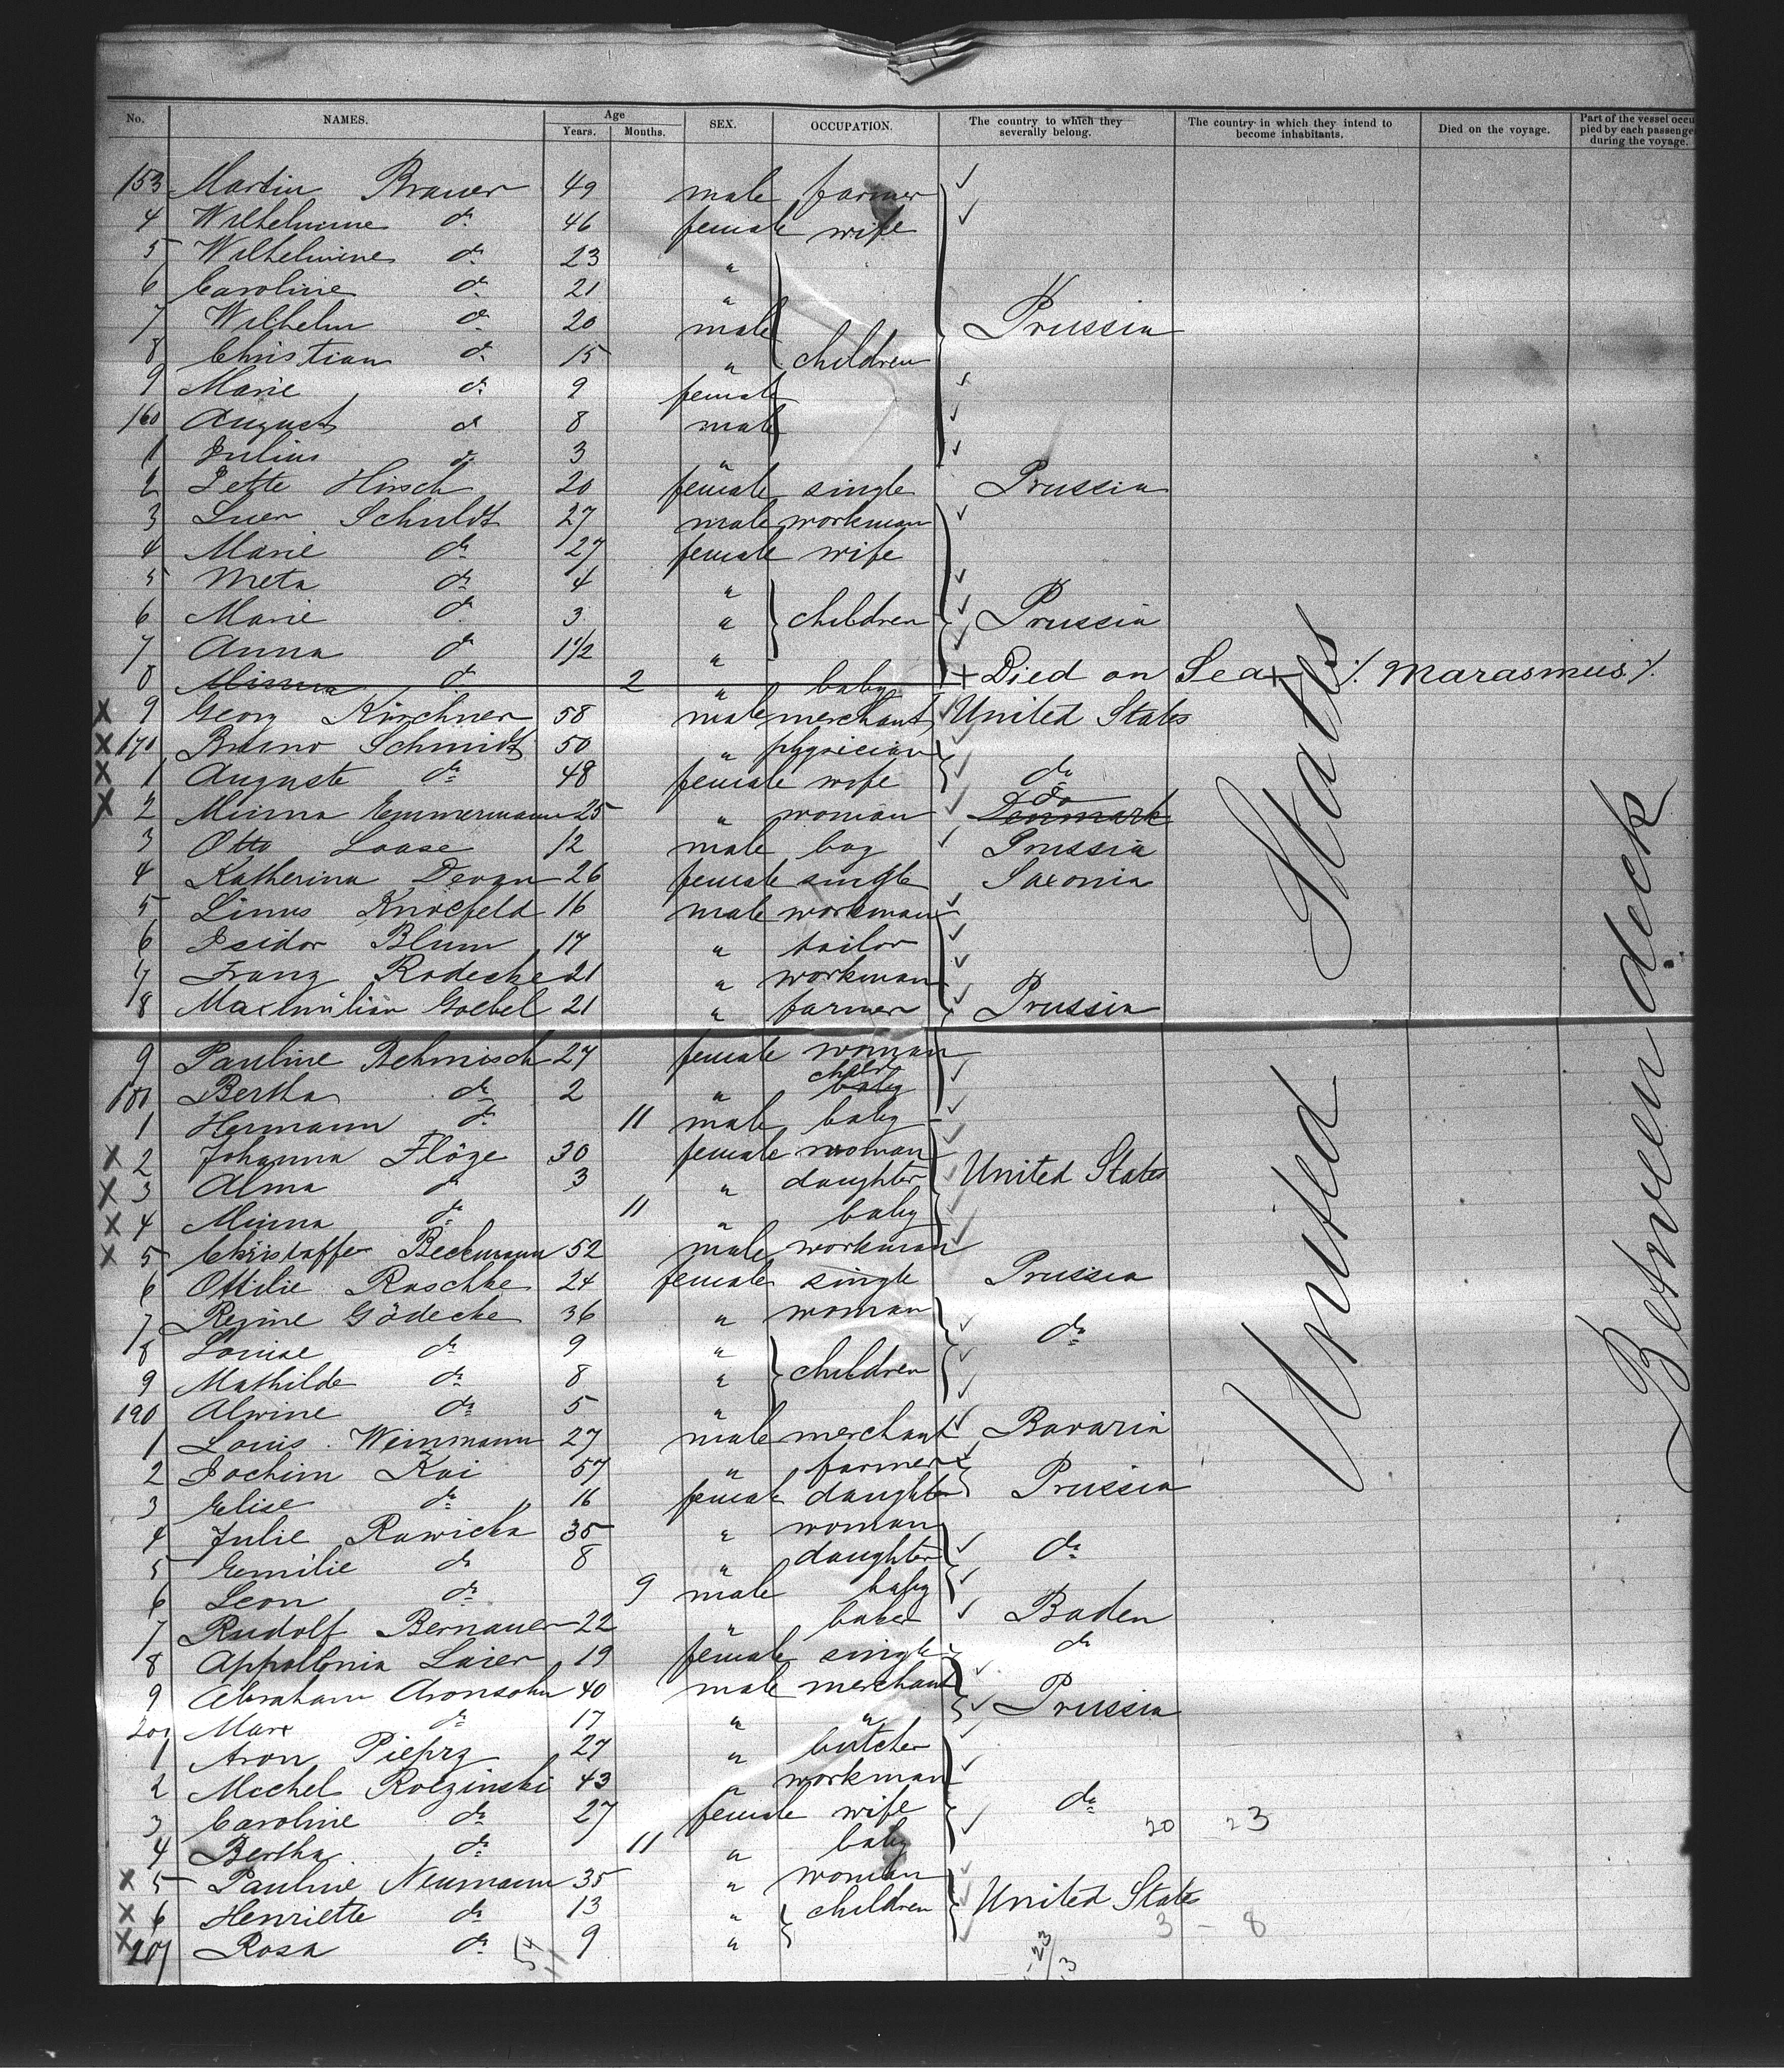 No. NAMES. Age Years. Months. SEX. OCCUPATION. The country to which they severally belong. The country in which they intend to become inhabitants. Died on the voyage. Part of the vessel occupied by each passenger during the voyage.
153 Martin Brauer 49 male farmer
4 Wilhelmine do 46 female wife
5 Wilhelmine do 23 "
6 Caroline do 21 "
7 Wilhelm do 20 male Prussia
8 Christian do 15 " children
9 Marie do 9 female
160 August do 8 male
1 Julius do 3 "
2 Jette Hirsch 20 female single Prussia
3 Luer Schuldt 27 male workman
4 Marie do 27 female wife
5 Meta do 4 "
6 Marie do 3 " children Prussia
7 Anna do 1½ "
8 Minna do 2 " baby + Died on Sea + ·/. Marasmus ·/.
X 9 Georg Kirchner 58 male merchant United States
X 170 Bruno Schmidt 50 " physician
X 1 Auguste do 48 female wife do
X 2 Minna Emmermann 25 " woman Denmark do
3 Otto Laase 12 male boy Prussia
4 Katherina Devan 26 female single Saxonia
5 Linus Knoefeld 16 male workman
6 Isidor Blum 17 " tailor
7 Franz Radecke 21 " workman
8 Maxmilian Goebel 21 " farmer Prussia
9 Pauline Behmisch 27 female woman
180 Bertha do 2 " baby child
1 Hermann do 11 male baby
X 2 Johanna Flöge 30 female woman
X 3 Alma do 3 " daughter United States
X 4 Minna do 11 " baby
X 5 Christoffer Beckmann 52 male workman
6 Ottilie Raschke 24 female single Prussia
7 Regine Gödecke 36 " woman
8 Louise do 9 " do
9 Mathilde do 8 " children
190 Alwine do 5 "
1 Louis Weinmann 27 male merchant Bavaria
2 Jochim Kai 57 " farmer
3 Elise do 16 female daughter Prussia
4 Julie Rawicka 35 " woman
5 Emilie do 8 " daughter do
6 Leon do 9 male baby
7 Rudolf Bernauer 22 " baker Baden
8 Appollonia Laier 19 female single do
9 Abraham Aronsohn 40 male merchant
200 Max do 17 " " Prussia
1 Aron Pieprz 27 " butcher
2 Mechel Roczinski 43 " workman
3 Caroline do 27 female wife do 20 23
4 Bertha do 11 " baby
X 5 Pauline Neumann 35 " woman
X 6 Henriette do 13 " children United States
3 - 8
X 207 Rosa do 9 "
54
11
23/3
United States
Between deck